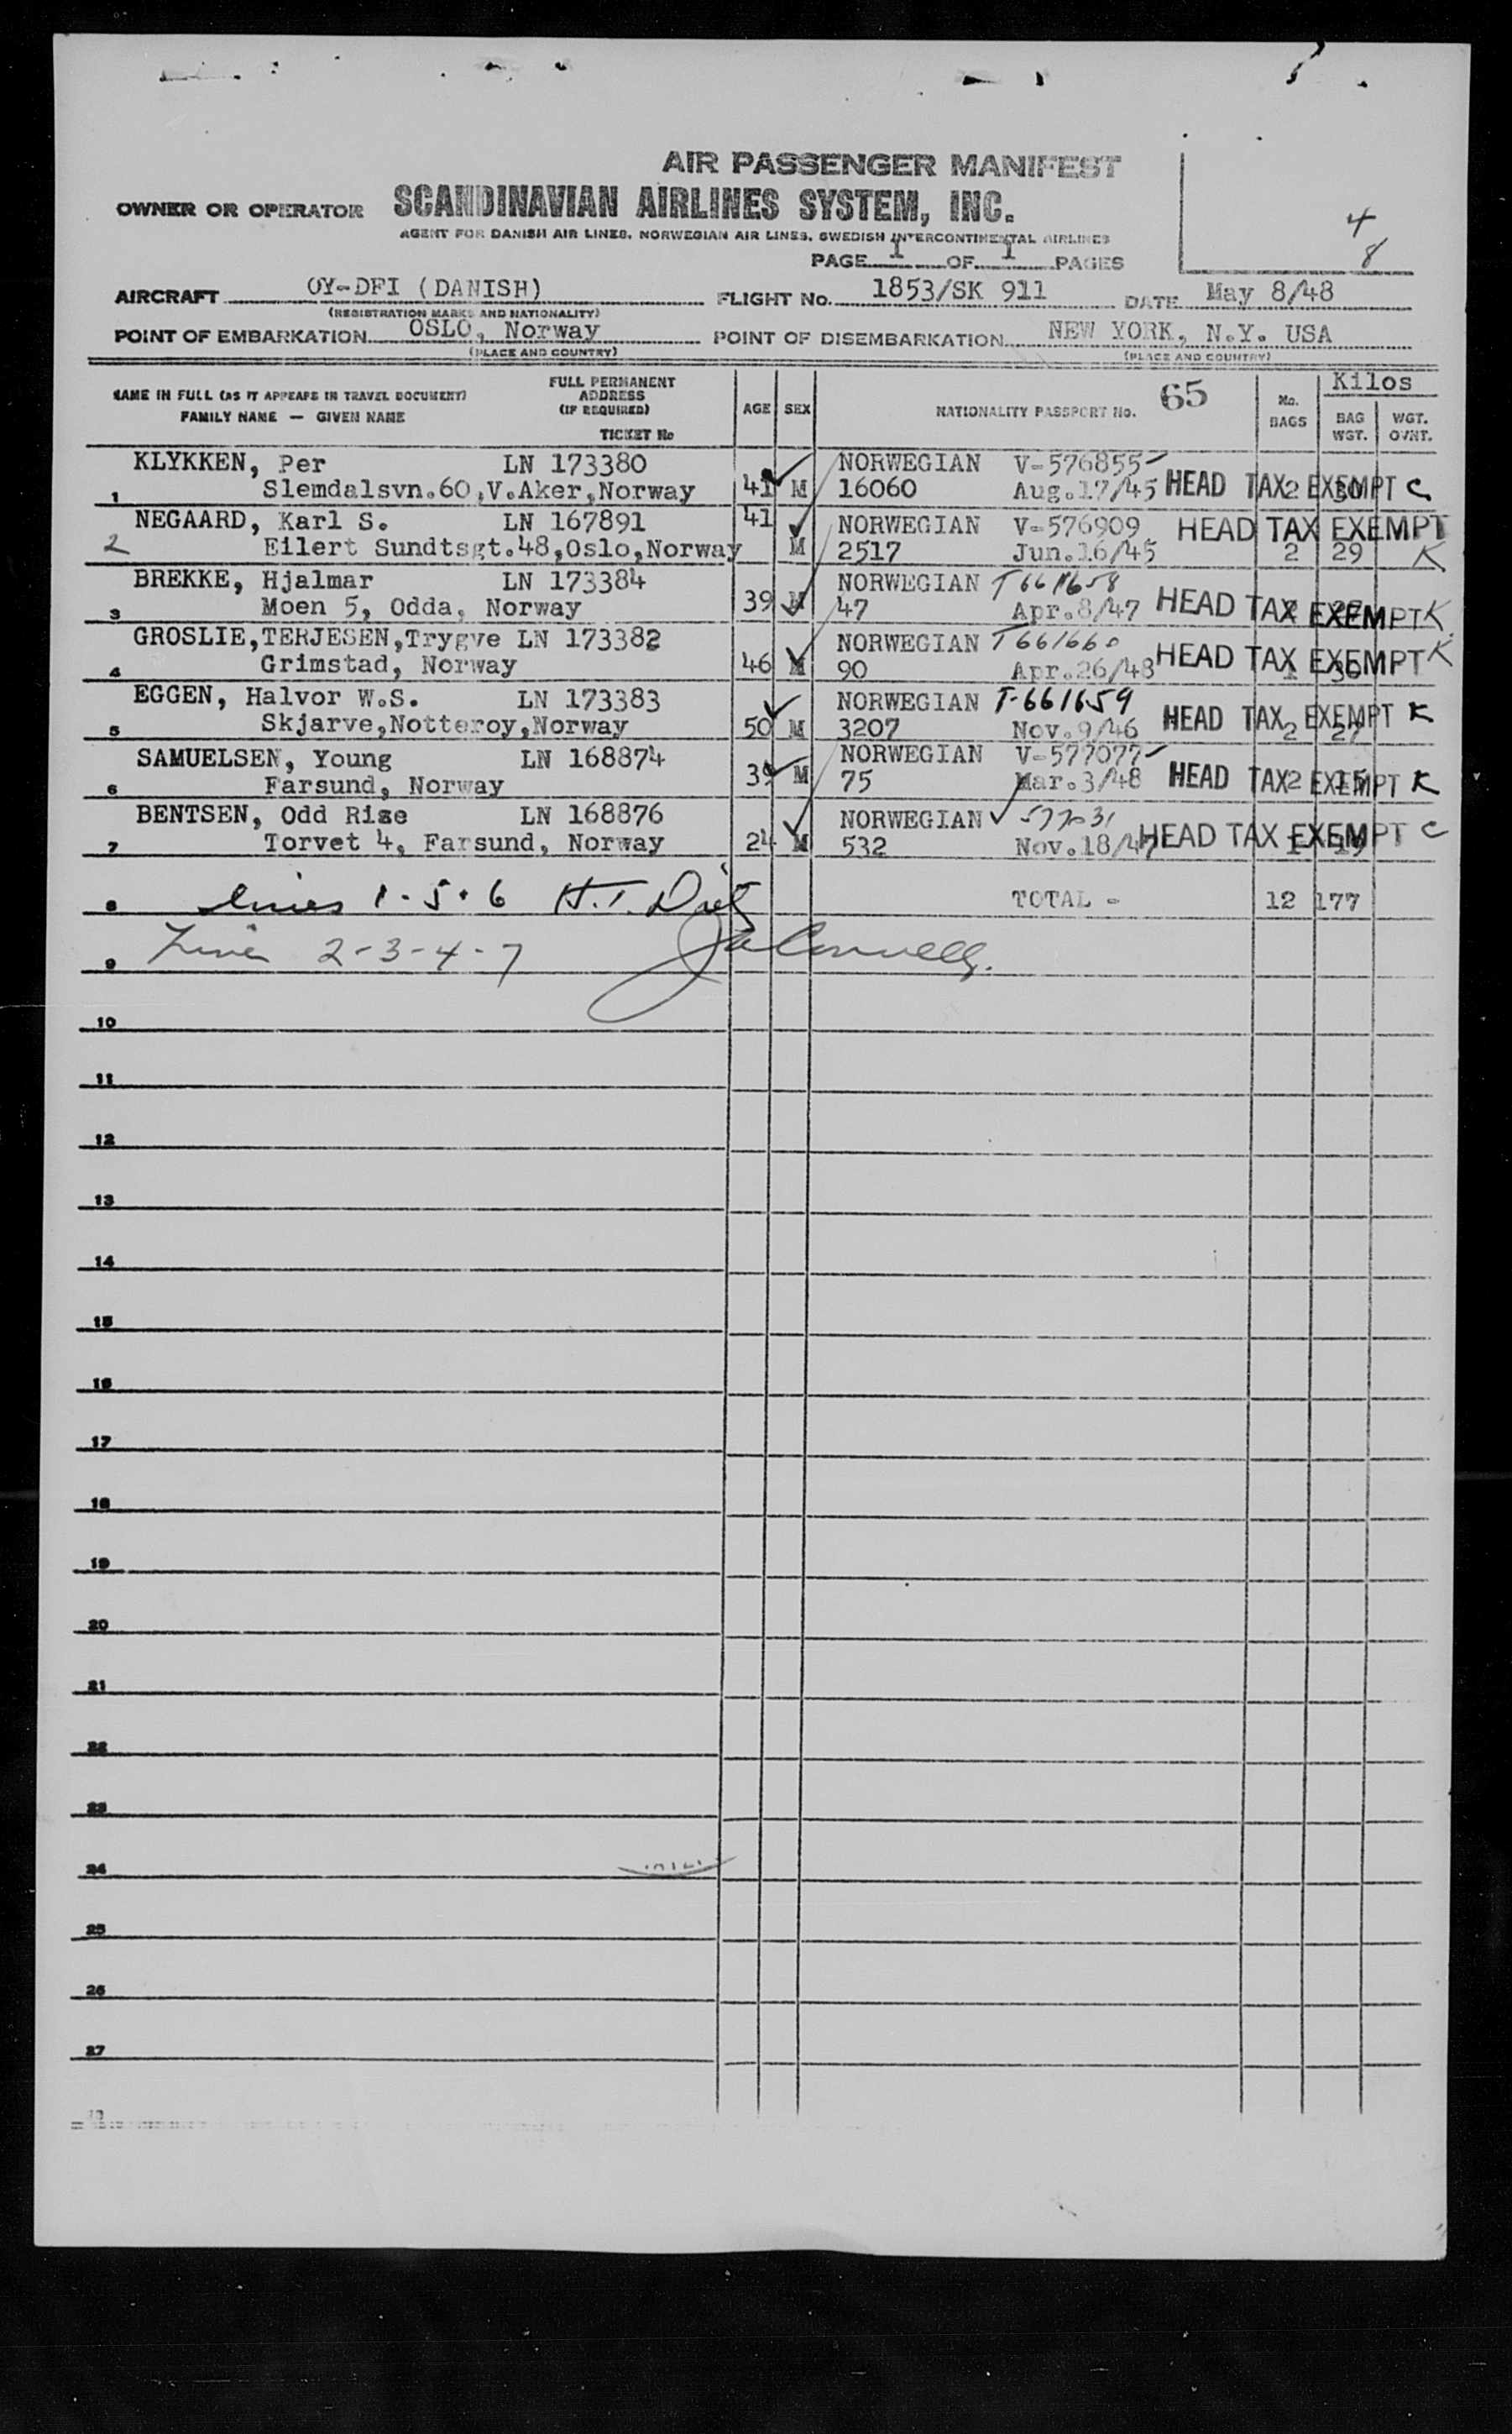 AIR PASSENGER MANIFEST
OWNER OR OPERATOR SCANDINAVIAN AIRLINES SYSTEM, INC.
AGENT FOR DANISH AIR LINES, NORWEGIAN AIR LINES, SWEDISH INTERCONTINENTAL AIRLINES
4
8
PAGE 1 OF 1 PAGES
AIRCRAFT OY-DFI (DANISH) FLIGHT No. 1853/SK 911 DATE May 8/48
(REGISTRATION MARKS AND NATIONALITY)
POINT OF EMBARKATION OSLO, Norway POINT OF DISEMBARKATION NEW YORK, N.Y. USA
(PLACE AND COUNTRY) (PLACE AND COUNTRY)
NAME IN FULL (AS IT APPEARS IN TRAVEL DOCUMENT) FULL PERMANENT ADDRESS (IF REQUIRED) AGE SEX NATIONALITY PASSPORT No. 65 No. BAGS Kilos
FAMILY NAME — GIVEN NAME TICKET No BAG WGT. WGT. OVNT.
KLYKKEN, Per LN 173380 NORWEGIAN V-576855
1 Slemdalsvn.60,V.Aker,Norway 41 M 16060 Aug.17/45 HEAD TAX EXEMPT 2 30 C
NEGAARD, Karl S. LN 167891 41 NORWEGIAN V-576909 HEAD TAX EXEMPT
2 Eilert Sundtsgt.48,Oslo,Norway M 2517 Jun.16/45 2 29 K
BREKKE, Hjalmar LN 173384 NORWEGIAN T661658
3 Moen 5, Odda, Norway 39 M 47 Apr.8/47 HEAD TAX EXEMPT K
GROSLIE,TERJESEN,Trygve LN 173382 NORWEGIAN T661660
4 Grimstad, Norway 46 M 90 Apr.26/48 HEAD TAX EXEMPT 1 36 K
EGGEN, Halvor W.S. LN 173383 NORWEGIAN T-661659
5 Skjarve,Notteroy,Norway 50 M 3207 Nov.9/46 HEAD TAX EXEMPT 2 27 K
SAMUELSEN, Young LN 168874 NORWEGIAN V-577077
6 Farsund, Norway 39 M 75 Mar.3/48 HEAD TAX EXEMPT 2 15 K
BENTSEN, Odd Rise LN 168876 NORWEGIAN V 577031
7 Torvet 4, Farsund, Norway 24 M 532 Nov.18/47 HEAD TAX EXEMPT 1 C
8 Lines 1-5-6 H.T. TOTAL - 12 177
9 Lines 2-3-4-7
10
11
12
13
14
15
16
17
18
19
20
21
22
23
24
25
26
27